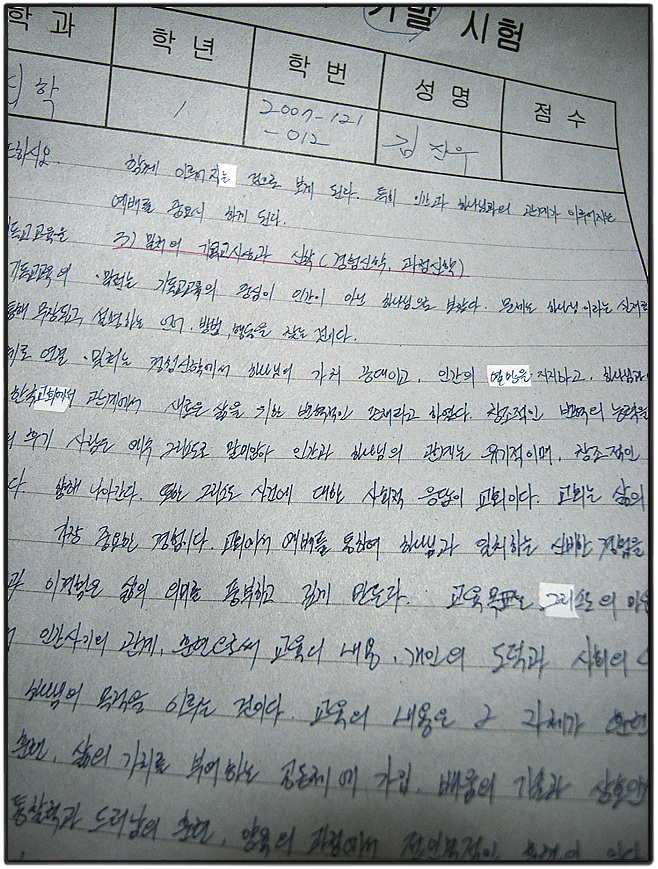 기말 시험
학 과 학 년 학 번 성 명 점 수
학 1 2007-121
-012
하시오. 함께 이루어지는 것으로 보게 된다. 특히 인간과 하나님과의 관계가 이루어지는
예배를 중요시 하게 된다.
독교교육을 3) 밀러의 기독교사상과 신학(경험신학, 과정신학)
기독교교육의 · 밀러는 기독교교육의 중심이 인간이 아닌 하나님으로 보았다. 문제는 하나님이라는 실재로
통해 무장되고, 설명하는 언어, 방법, 행동을 찾는 것이다.
연결 · 밀러는 경험신학에서 하나님이 가치 증대이고, 인간의 열망을 지지하고, 하나님과
한국교회에서 관계에서 새로운 삶을 위한 반복적인 존재라고 하였다. 창조적인 변혁의 능력을
사람은 예수 그리스도로 말미암아 인간과 하나님의 관계는 유기적이며, 창조적인
다 향해 나아간다. 또한 그리스도 사건에 대한 사회적 응답이 교회이다. 교회는 삶의
가장 중요한 경험이다. 교회에서 예배를 통하여 하나님과 일치하는 신비한 경험을
이 경험은 삶의 의미를 풍부하고 깊게 만든다. 교육목표는 그리스도의
인간사이의 관계, 훈련으로써 교육의 내용, 개인의 도덕과 사회의
하나님의 목적을 이루는 것이다. 교육의 내용은 그 자체가 훈련
훈련, 삶의 가치를 부여하는 공동체에 가입, 배움의 기술과
통찰력과 드러남의 훈련, 양육의 과정에서 전인목적인